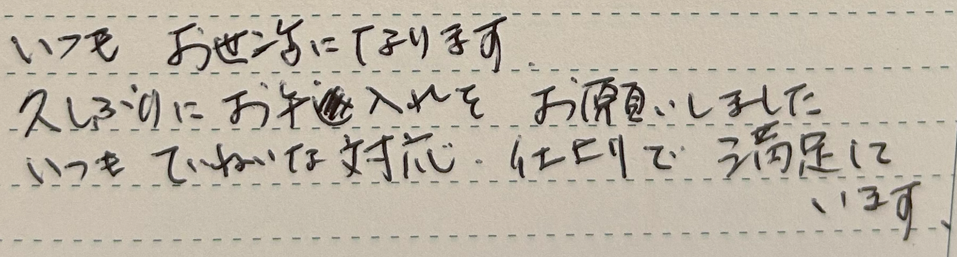 いつも お世話になります
久しぶりにお手入れを お願いしました
いつも ていねいな対応．仕上りで 満足して
います、